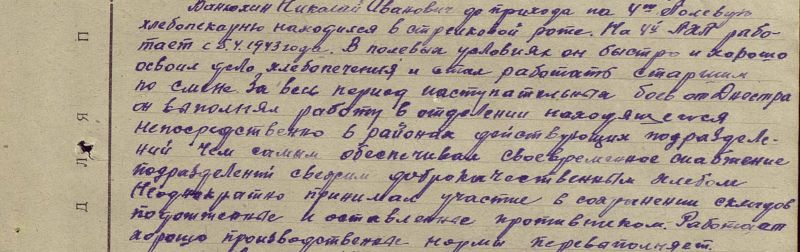 Ванюхин Николай Иванович до прихода на 4ую Полевую
хлебопекарню находился в стрелковой роте. На 4й ПХП рабо-
тает с 5.4.1943 года. В полевых условиях он быстро и хорошо
освоил дело хлебопечения и стал работать старшим
по смене. За весь период наступательных боев от Днестра
он выполнял работу в отделении находящегося
непосредственно в районах действующих подразделе-
ний чем самым обеспечивал своевременное снабжение
подразделений свежим доброкачественным хлебом
Неоднократно принимал участие в сохранении складов
подожженные и оставленые противником. Работает
хорошо производственные нормы перевыполняет.
Д Л Я П